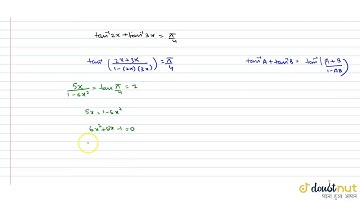 tan⁻¹2x + tan⁻¹3x = π/4
tan⁻¹(2x+3x / 1-(2x)(3x)) = π/4
tan⁻¹A + tan⁻¹B = tan⁻¹(A+B / 1-AB)
5x / 1-6x² = tan π/4 = 1
5x = 1-6x²
6x²+5x-1=0
doubtnut